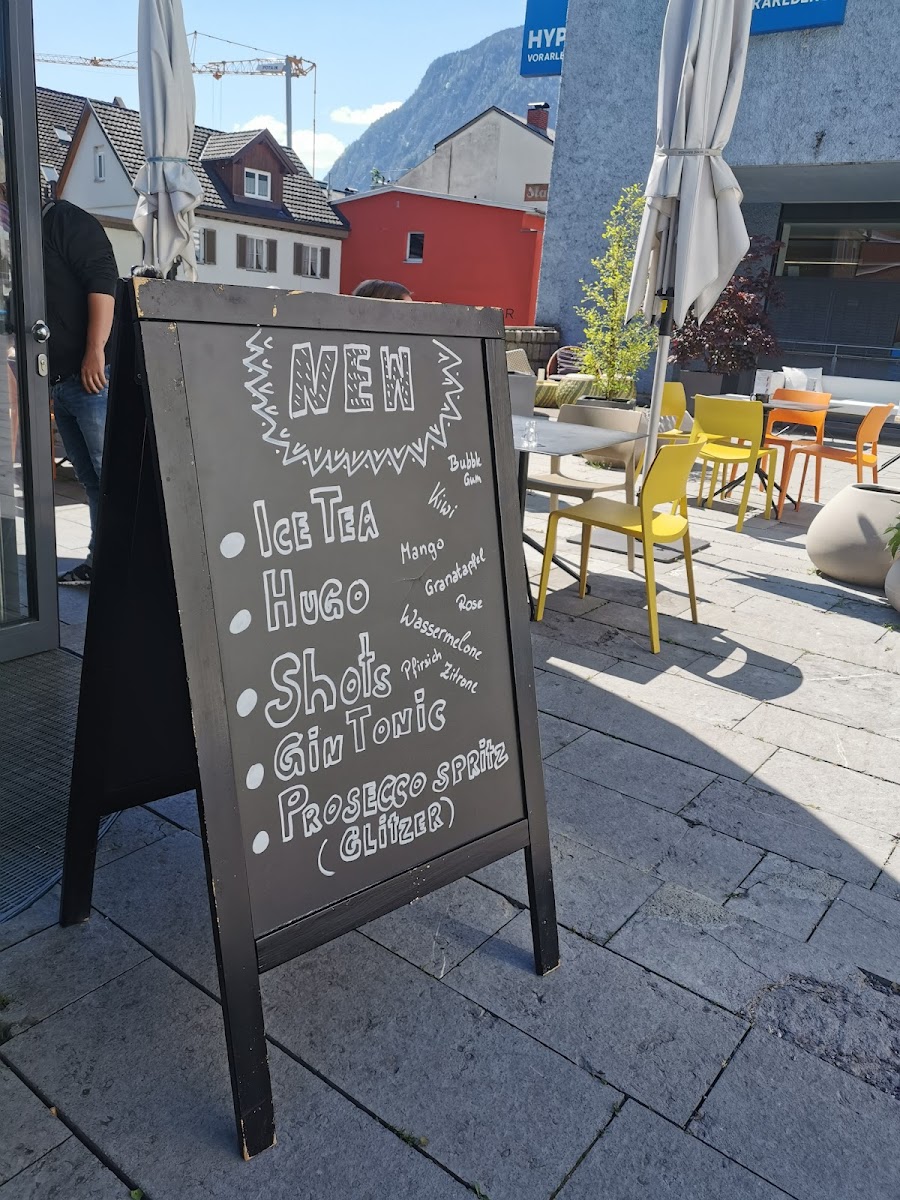 HYP
VORARLE
RARLBERG
NEW
Ice Tea
Hugo
Shots
Gin Tonic
Prosecco Spritz
(Glitzer)
Bubble
Gum
Kiwi
Mango
Granatapfel
Rose
Wassermelone
Pfirsich
Zitrone